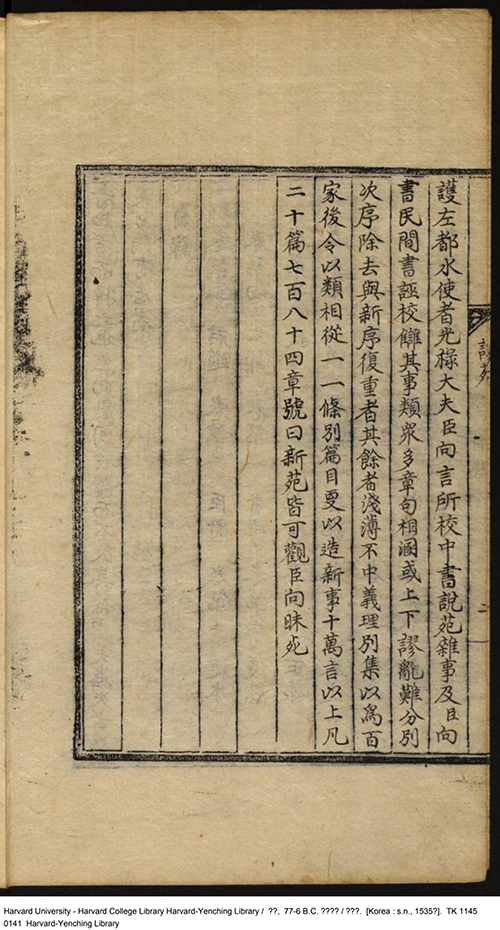 護左都水使者光祿大夫臣向言所校中書說苑雜事及臣向
書民間書誣校讎其事類衆多章句相溷或上下謬亂難分別
次序除去與新序復重者其餘者淺薄不中義理別集以爲百
家後令以類相從一一條別篇目更以造新事十萬言以上凡
二十篇七百八十四章號曰新苑皆可觀臣向昧死
說苑
二
Harvard University - Harvard College Library Harvard-Yenching Library / ??, 77-6 B.C. ???? / ???. [Korea : s.n., 1535?]. TK 1145
0141 Harvard-Yenching Library